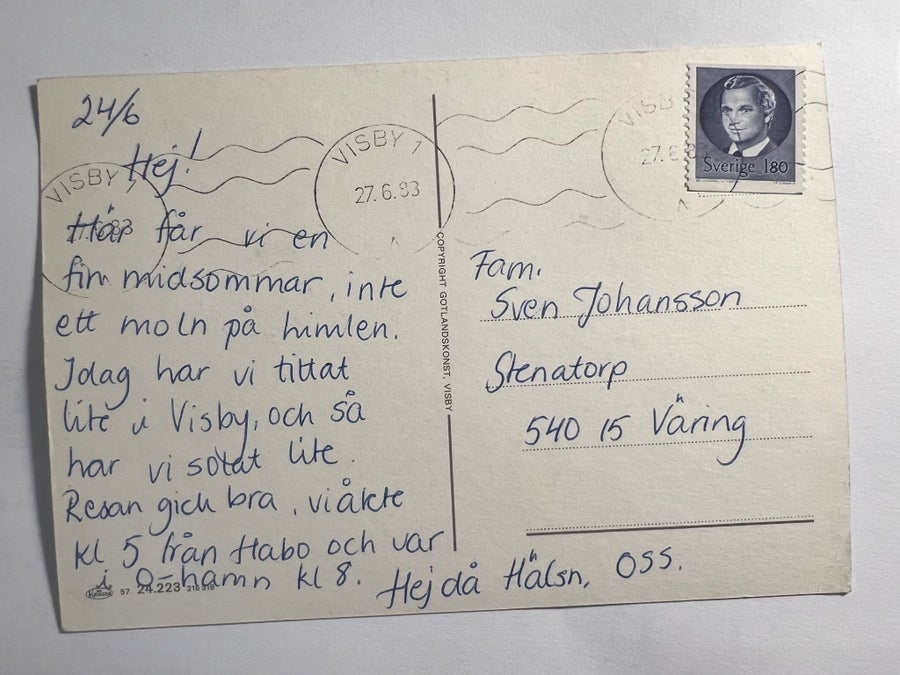 24/6
Hej!
Här får vi en
fin midsommar, inte
ett moln på himlen.
Idag har vi tittat
lite i Visby, och så
har vi solat lite.
Resan gick bra, vi åkte
kl 5 från Habo och var
i O-hamn kl 8. Hej då Hälsn. OSS.
57. 24.223
VISBY
VISBY 1
27.6.83
VISB
27.6.83
Sverige 180
COPYRIGHT GOTLANDSKONST, VISBY
Fam.
Sven Johansson
Stenatorp
540 15 Väring